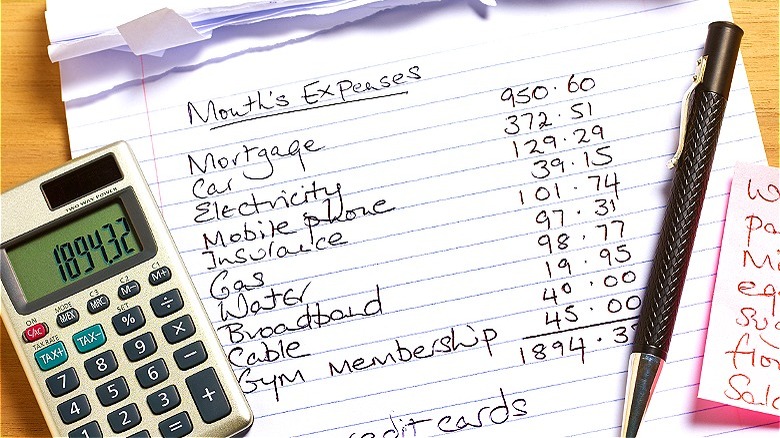 Month's Expenses
Mortgage 950.60
Car 372.51
Electricity 129.29
Mobile phone 39.15
Insurance 101.74
Gas 97.31
Water 98.77
Broadband 19.95
Cable 40.00
Gym membership 45.00
1894.3
cards
TWO WAY POWER
1894.32
ON MODE C3 C2 C1
C/AC M/EX MRC M- M+
TAX RATE SET
TAX+ TAX- % ÷
7 8 9 ×
4 5 6 −
1 2 3 +
=